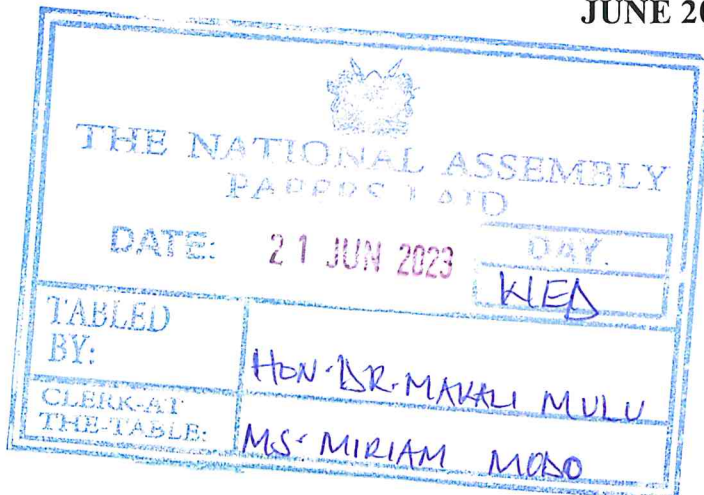 JUNE 20
THE NATIONAL ASSEMBLY
PAPERS LAID
DATE: 21 JUN 2023 DAY.
WED
TABLED BY: HON. DR. MAKALI MULU
CLERK-AT THE-TABLE: MS. MIRIAM MODO